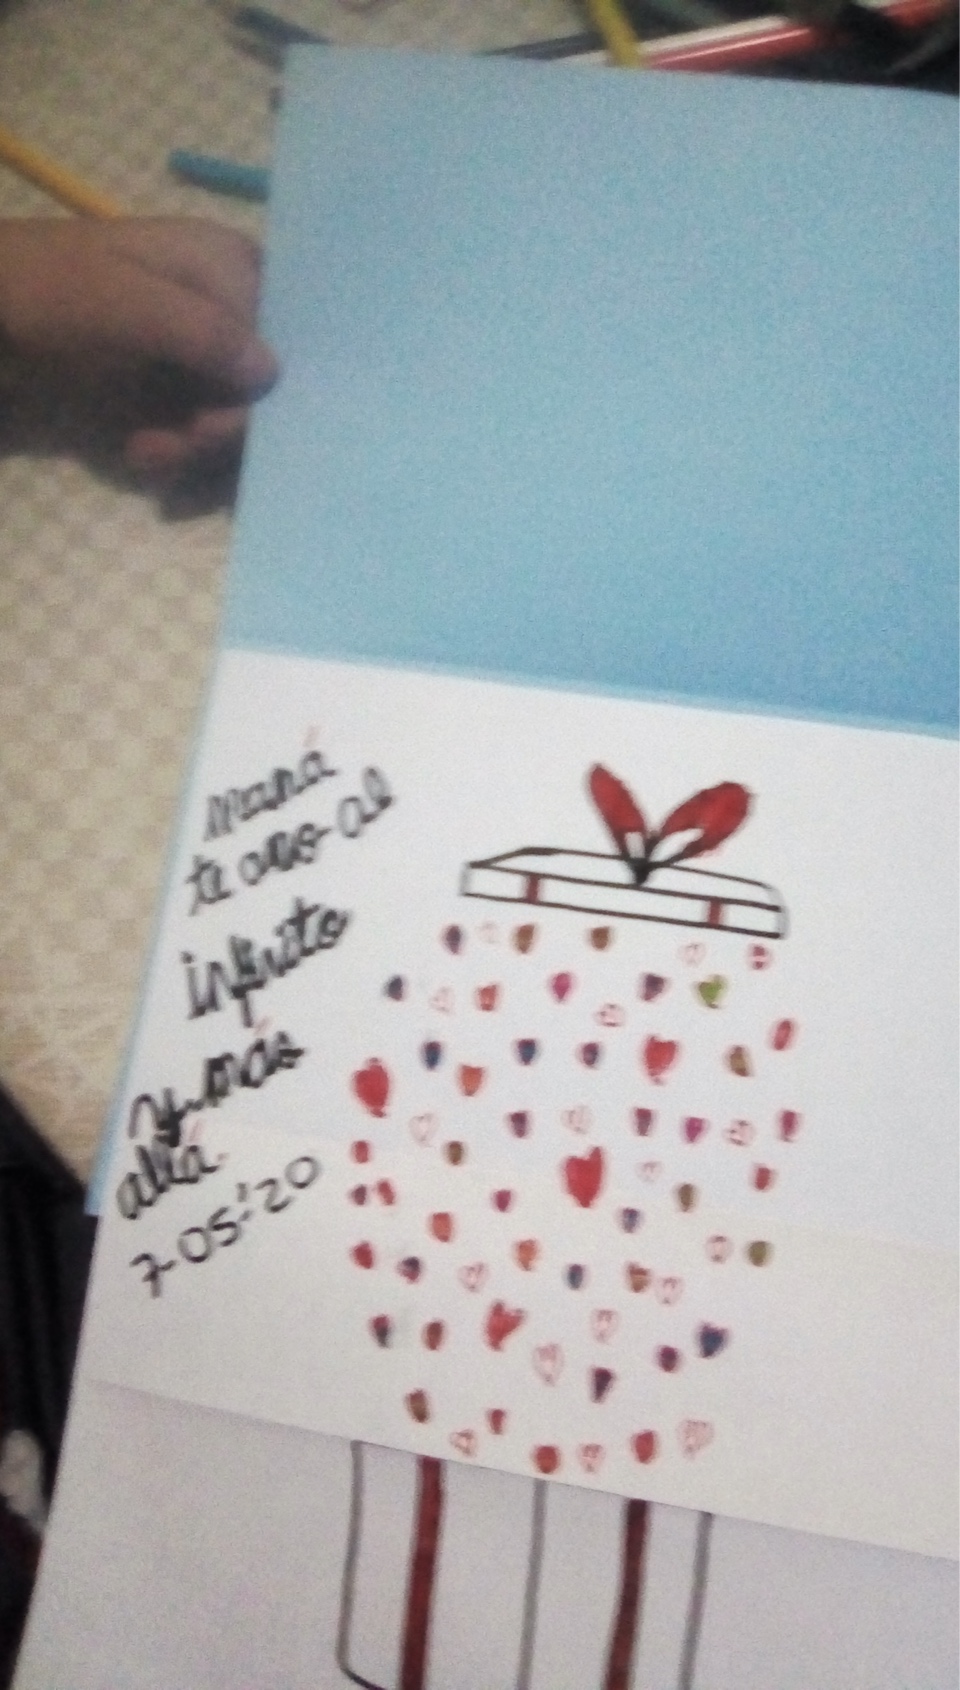 Mamá
te amo al
infinito
y más
allá.
7-05-'20